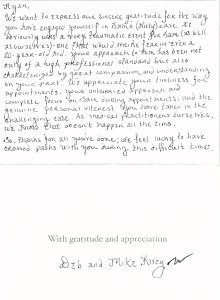 Ryan,
We want to express our sincere gratitude for the way
you have engaged yourself in case. It
obviously was a very traumatic event for (as well
as ourselves) - one that would instill fear in even a
20-year-old! Your approach to him has been not
only of a high professional standard but also
characterized by great compassion and understanding
on your part. We appreciate your timeliness for
appointments, your unhurried approach and
complete focus on during appointments, and the
genuine, personal interest you have taken in the
challenging case. As medical practitioners ourselves,
we know that doesn't happen all the time.
So, thanks for all you've done; we feel lucky to have
crossed paths with you during this difficult time.
With gratitude and appreciation
Deb and Mike